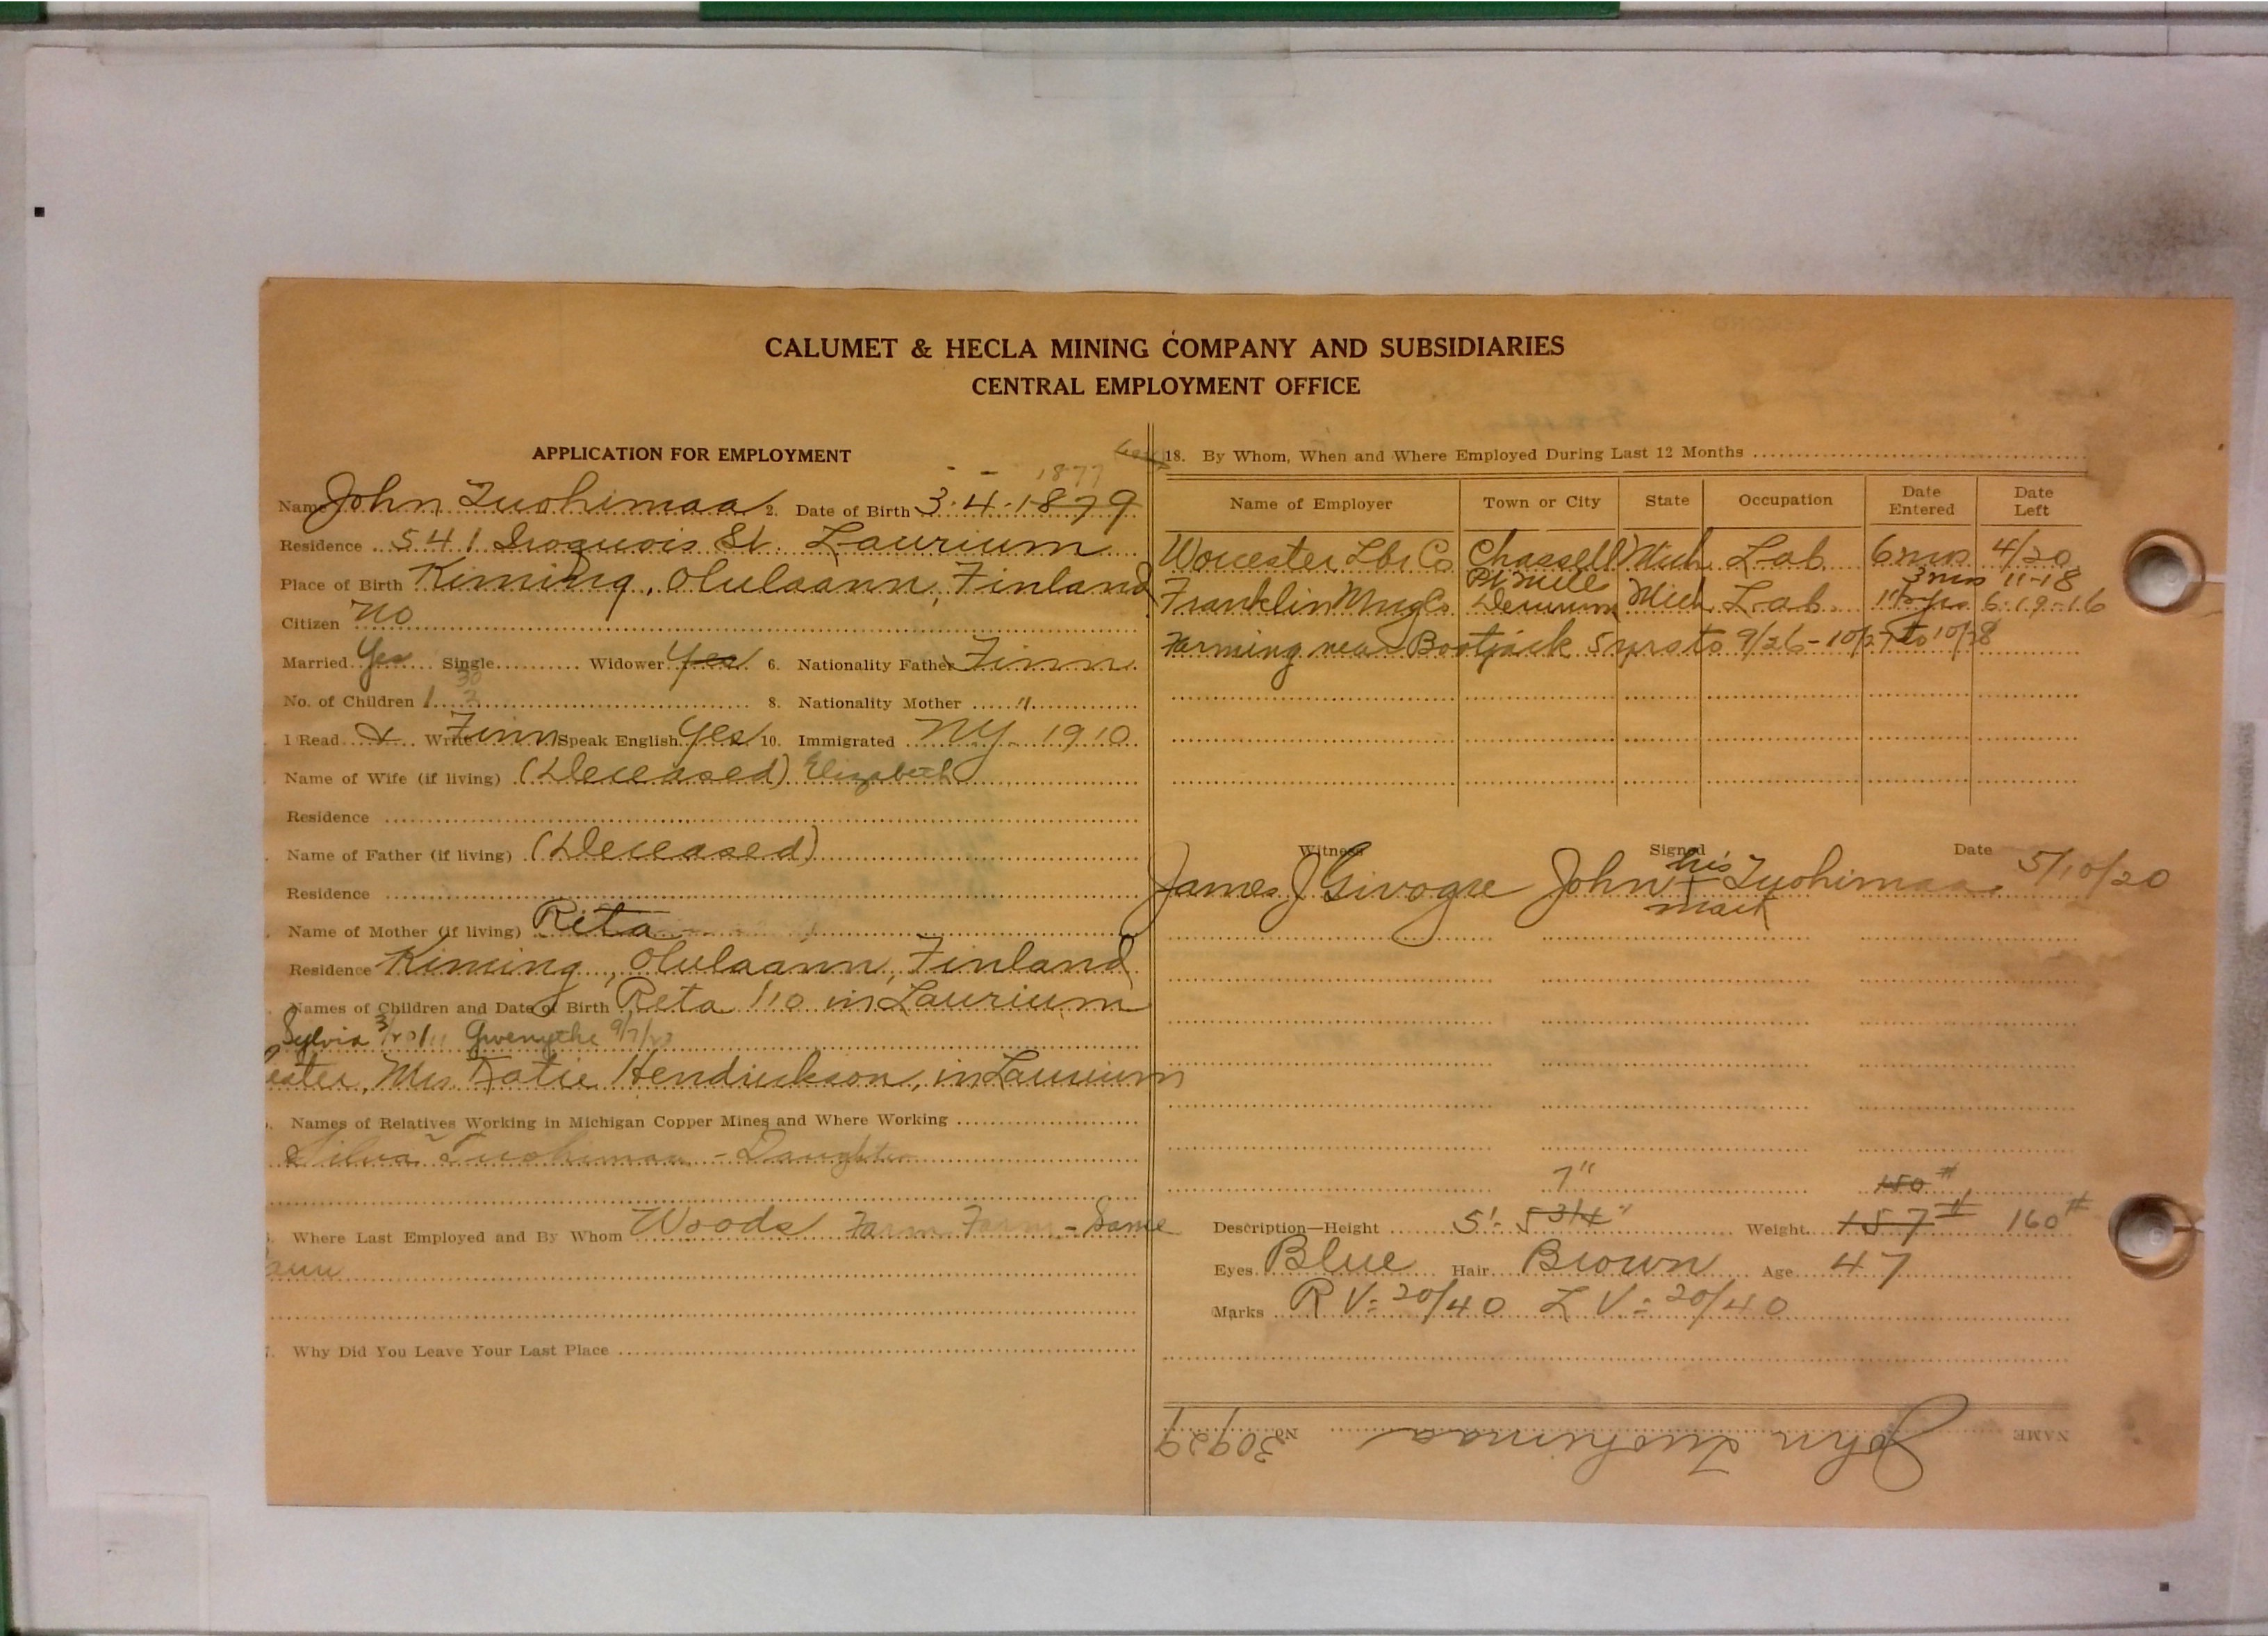 CALUMET & HECLA MINING COMPANY AND SUBSIDIARIES
CENTRAL EMPLOYMENT OFFICE
APPLICATION FOR EMPLOYMENT
1877
Name John Tuohimaa 2. Date of Birth 3-4-1879
Residence 541 Iroquois St. Laurium
Place of Birth Kiming, Olulaann, Finland
Citizen No
Married Yes Single Widower Yes 6. Nationality Father Finn
No. of Children 1 8. Nationality Mother "
1 Read & Write Finn Speak English Yes 10. Immigrated NY 1910
Name of Wife (if living) (Deceased) Elizabeth
Residence
Name of Father (if living) (Deceased)
Residence
Name of Mother (if living) Reta
Residence Kiming, Olulaann, Finland
Names of Children and Date of Birth Reta 1/10 in Laurium
Sylvia Gwenythe
Mrs Katie Hendrickson, in Laurium
Names of Relatives Working in Michigan Copper Mines and Where Working
Silva Tuohimaa - Daughter
Where Last Employed and By Whom Woods Farm Farm - Same
Why Did You Leave Your Last Place
18. By Whom, When and Where Employed During Last 12 Months
Name of Employer Town or City State Occupation Date Entered Date Left
Worcester Lbr Co Chassell Mich. Lab. 6 mos 4/20
Pt Mills 3 mos 11-18
Franklin Mng Co. Demmon Mich. Lab. 6-19-16
Farming near Bootjack 5 yrs to 9/26 - 10/27 to 10/28
Witness Signed Date
James J Givogre John his + mark Tuohimaa 5/10/20
7" 150#
Description—Height 5'- 5 3/4" Weight 157# 160#
Eyes Blue Hair Brown Age 47
Marks R V= 20/40 L V= 20/40
NAME John Tuohimaa No. 30929